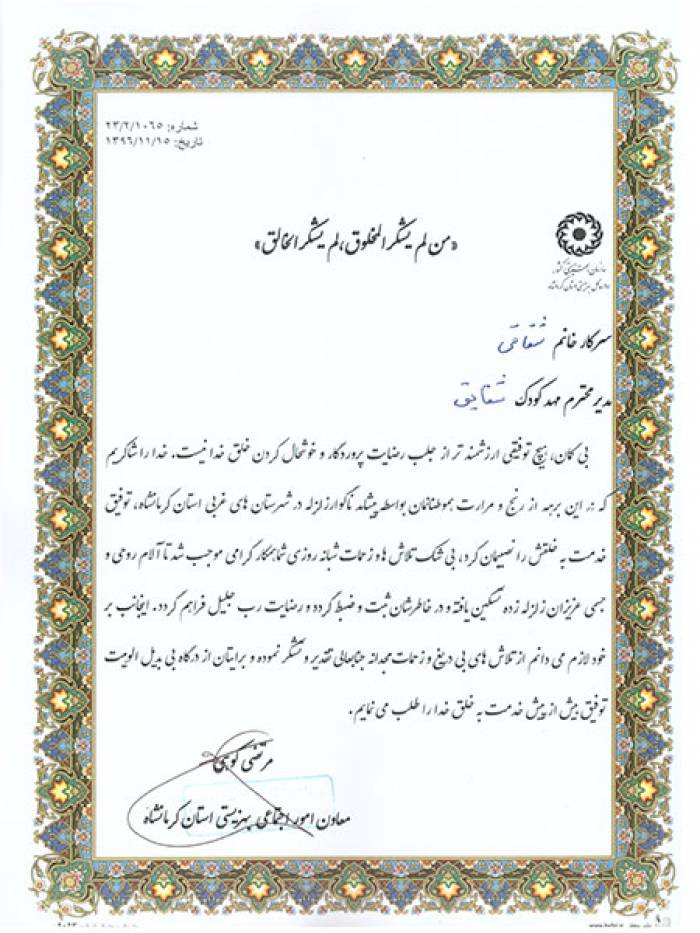 شماره: ۲۳/۲/۱۰۶۵
تاریخ: ۱۳۹۶/۱۱/۱۵
«من لم یشکر المخلوق، لم یشکر الخالق»
سازمان بهزیستی کشور
اداره کل بهزیستی استان کرمانشاه
سرکار خانم شقاقی
مدیر محترم مهد کودک شقایق
بی گمان، هیچ توفیقی ارزشمند تر از جلب رضایت پروردگار و خوشحال کردن خلق خدا نیست. خدا را شاکریم
که در این برهه از رنج و مرارت هموطنانمان بواسطه پیشامد ناگوار زلزله در شهرستان های غربی استان کرمانشاه، توفیق
خدمت به خلقتش را نصیبمان کرد، بی شک تلاش ها و زحمات شبانه روزی شما همکار گرامی موجب شد تا آلام روحی و
جسمی عزیزان زلزله زده تسکین یافته و در خاطرشان ثبت و ضبط گردد و رضایت رب جلیل فراهم گردد. اینجانب بر
خود لازم می دانم از تلاش های بی دریغ و زحمات مجدانه جنابعالی تقدیر و تشکر نموده و برایتان از درگاه بی بدیل الوهیت
توفیق بیش از پیش خدمت به خلق خدا را طلب می نمایم.
مرتضی
معاون امور اجتماعی بهزیستی استان کرمانشاه